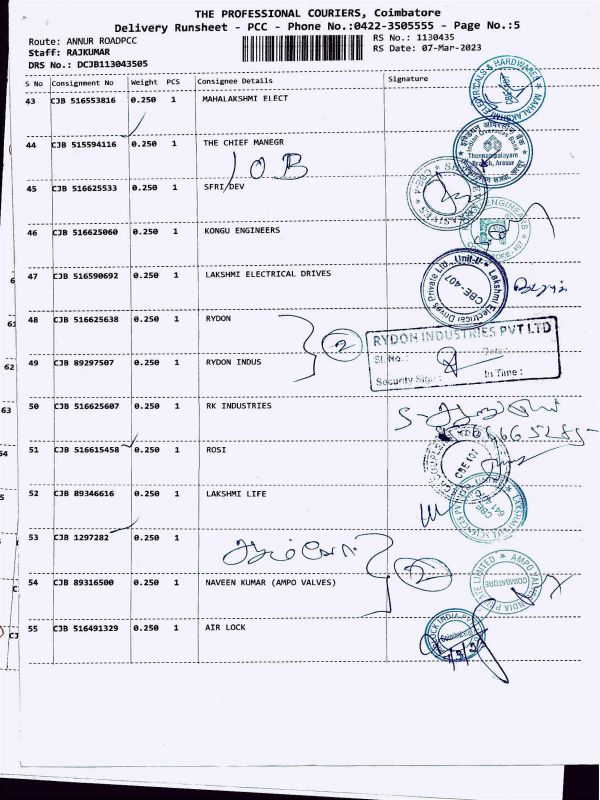 THE PROFESSIONAL COURIERS, Coimbatore
Delivery Runsheet - PCC - Phone No.:0422-3505555 - Page No.:5
Route: ANNUR ROADPCC
RS No.: 1130435
Staff: RAJKUMAR
RS Date: 07-Mar-2023
DRS No.: DCJB113043505
S No Consignment No Weight PCS Consignee Details Signature
43 CJB 516553816 0.250 1 MAHALAKSHMI ELECT
44 CJB 515594116 0.250 1 THE CHIEF MANEGR
IOB
45 CJB 516625533 0.250 1 SFRI/DEV
46 CJB 516625060 0.250 1 KONGU ENGINEERS
47 CJB 516590692 0.250 1 LAKSHMI ELECTRICAL DRIVES
48 CJB 516625638 0.250 1 RYDON
2
RYDON INDUSTRIES PVT LTD
Sl. No. : Date :
Security Sig. : In Time :
49 CJB 89297507 0.250 1 RYDON INDUS
50 CJB 516625607 0.250 1 RK INDUSTRIES
51 CJB 516615458 0.250 1 ROSI
52 CJB 89346616 0.250 1 LAKSHMI LIFE
53 CJB 1297282 0.250 1
2
54 CJB 89316500 0.250 1 NAVEEN KUMAR (AMPO VALVES)
55 CJB 516491329 0.250 1 AIR LOCK